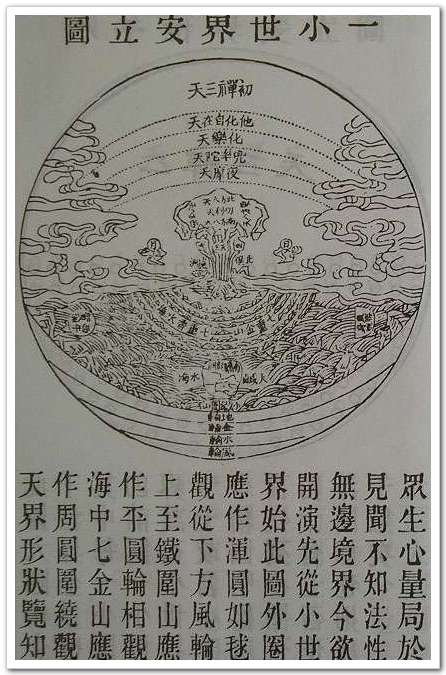 一小世界安立圖
初禪三天
他化自在天
化樂天
兜率陀天
夜摩天
忉利天
日
月
大鹹水海
地輪
金輪
水輪
風輪
眾生心量局於
見聞不知法性
無邊境界今欲
開演先從小世
界始此圖外圈
應作渾圓如球
觀從下方風輪
上至鐵圍山應
作平圓輪相觀
海中七金山應
作周圓圍繞觀
天界形狀覽知